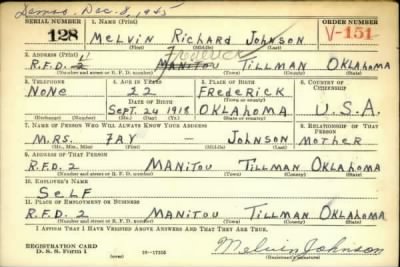 Demos. Dec. 8, 1945
SERIAL NUMBER 1. NAME (Print) ORDER NUMBER
128 MELVIN RICHARD JOHNSON V-151
(First) (Middle) (Last)
2. ADDRESS (Print) Frederick
R.F.D. 2 MANITOU TILLMAN OKLAHOMA
(Number and street or R. F. D. number) (Town) (County) (State)
3. TELEPHONE 4. AGE IN YEARS 5. PLACE OF BIRTH 6. COUNTRY OF CITIZENSHIP
NONE 22 FREDERICK
DATE OF BIRTH (Town or county)
SEPT. 24 1918 OKLAHOMA U.S.A.
(Exchange) (No.) (Mo.) (Day) (Yr.) (State or country)
7. NAME OF PERSON WHO WILL ALWAYS KNOW YOUR ADDRESS 8. RELATIONSHIP OF THAT PERSON
MRS. FAY — JOHNSON MOTHER
(Mr., Mrs., Miss) (First) (Middle) (Last)
9. ADDRESS OF THAT PERSON
R.F.D. 2 MANITOU TILLMAN OKLAHOMA
(Number and street or R. F. D. number) (Town) (County) (State)
10. EMPLOYER'S NAME
SELF
11. PLACE OF EMPLOYMENT OR BUSINESS
R.F.D. 2 MANITOU TILLMAN OKLAHOMA
(Number and street or R. F. D. number) (Town) (County) (State)
I AFFIRM THAT I HAVE VERIFIED ABOVE ANSWERS AND THAT THEY ARE TRUE.
REGISTRATION CARD Melvin Johnson
D. S. S. Form 1 (over) 16—17105 (Registrant's signature)